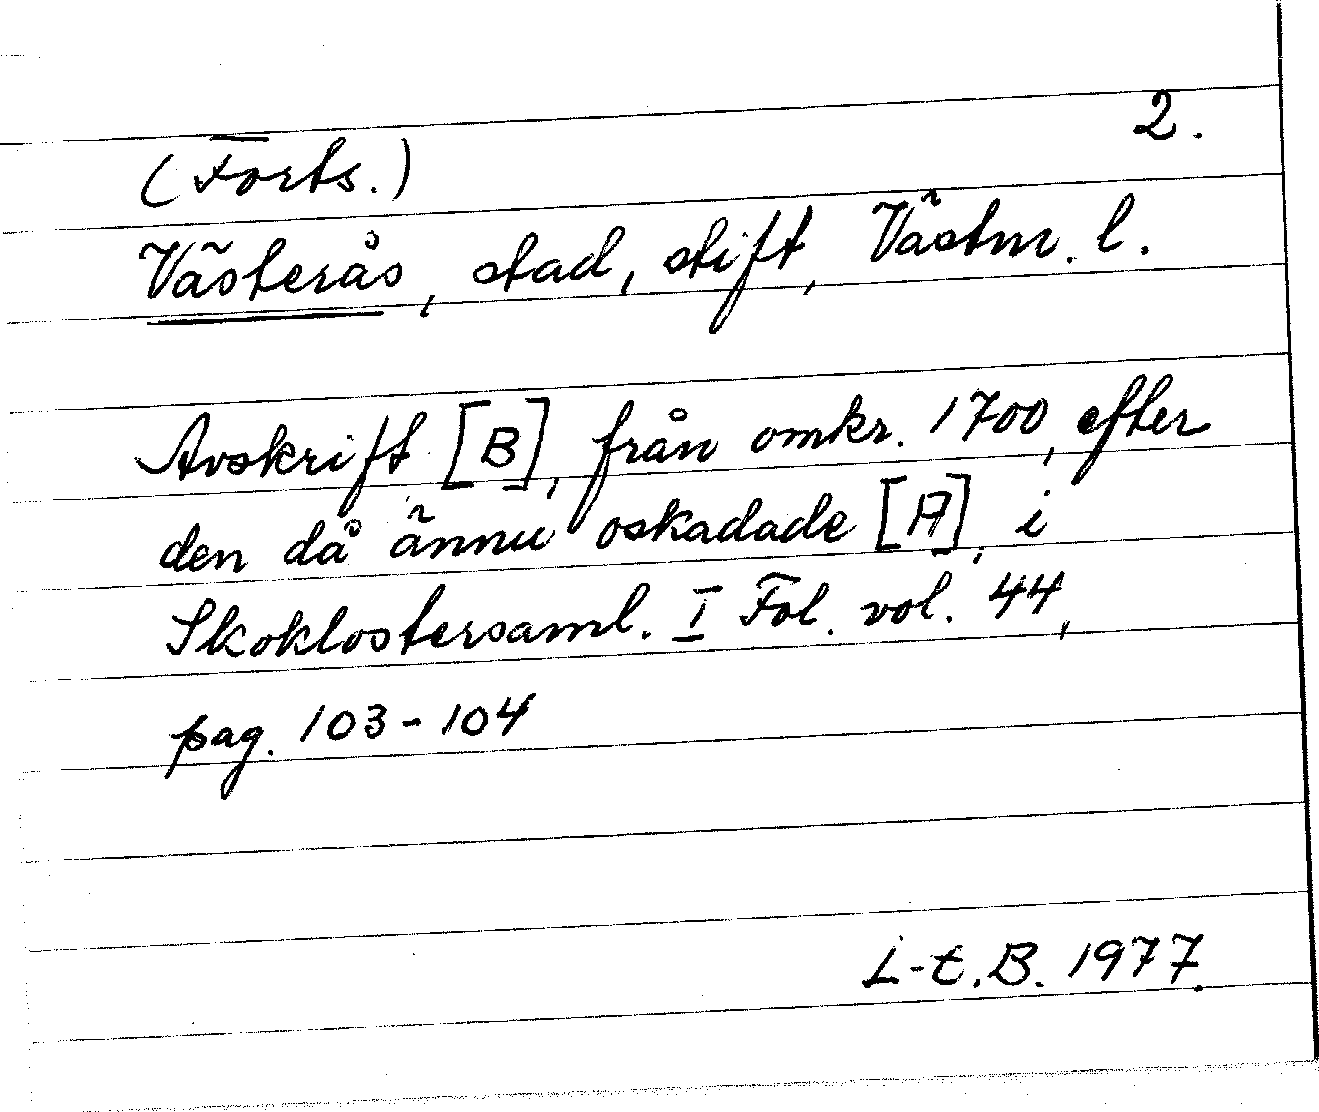 2.
(Forts.)
Västerås, stad, stift, Västm. l.
Avskrift [B], från omkr. 1700, efter
den då ännu oskadade [A], i
Skoklostersaml. I Fol. vol. 44,
pag. 103-104
L-E.B. 1977.